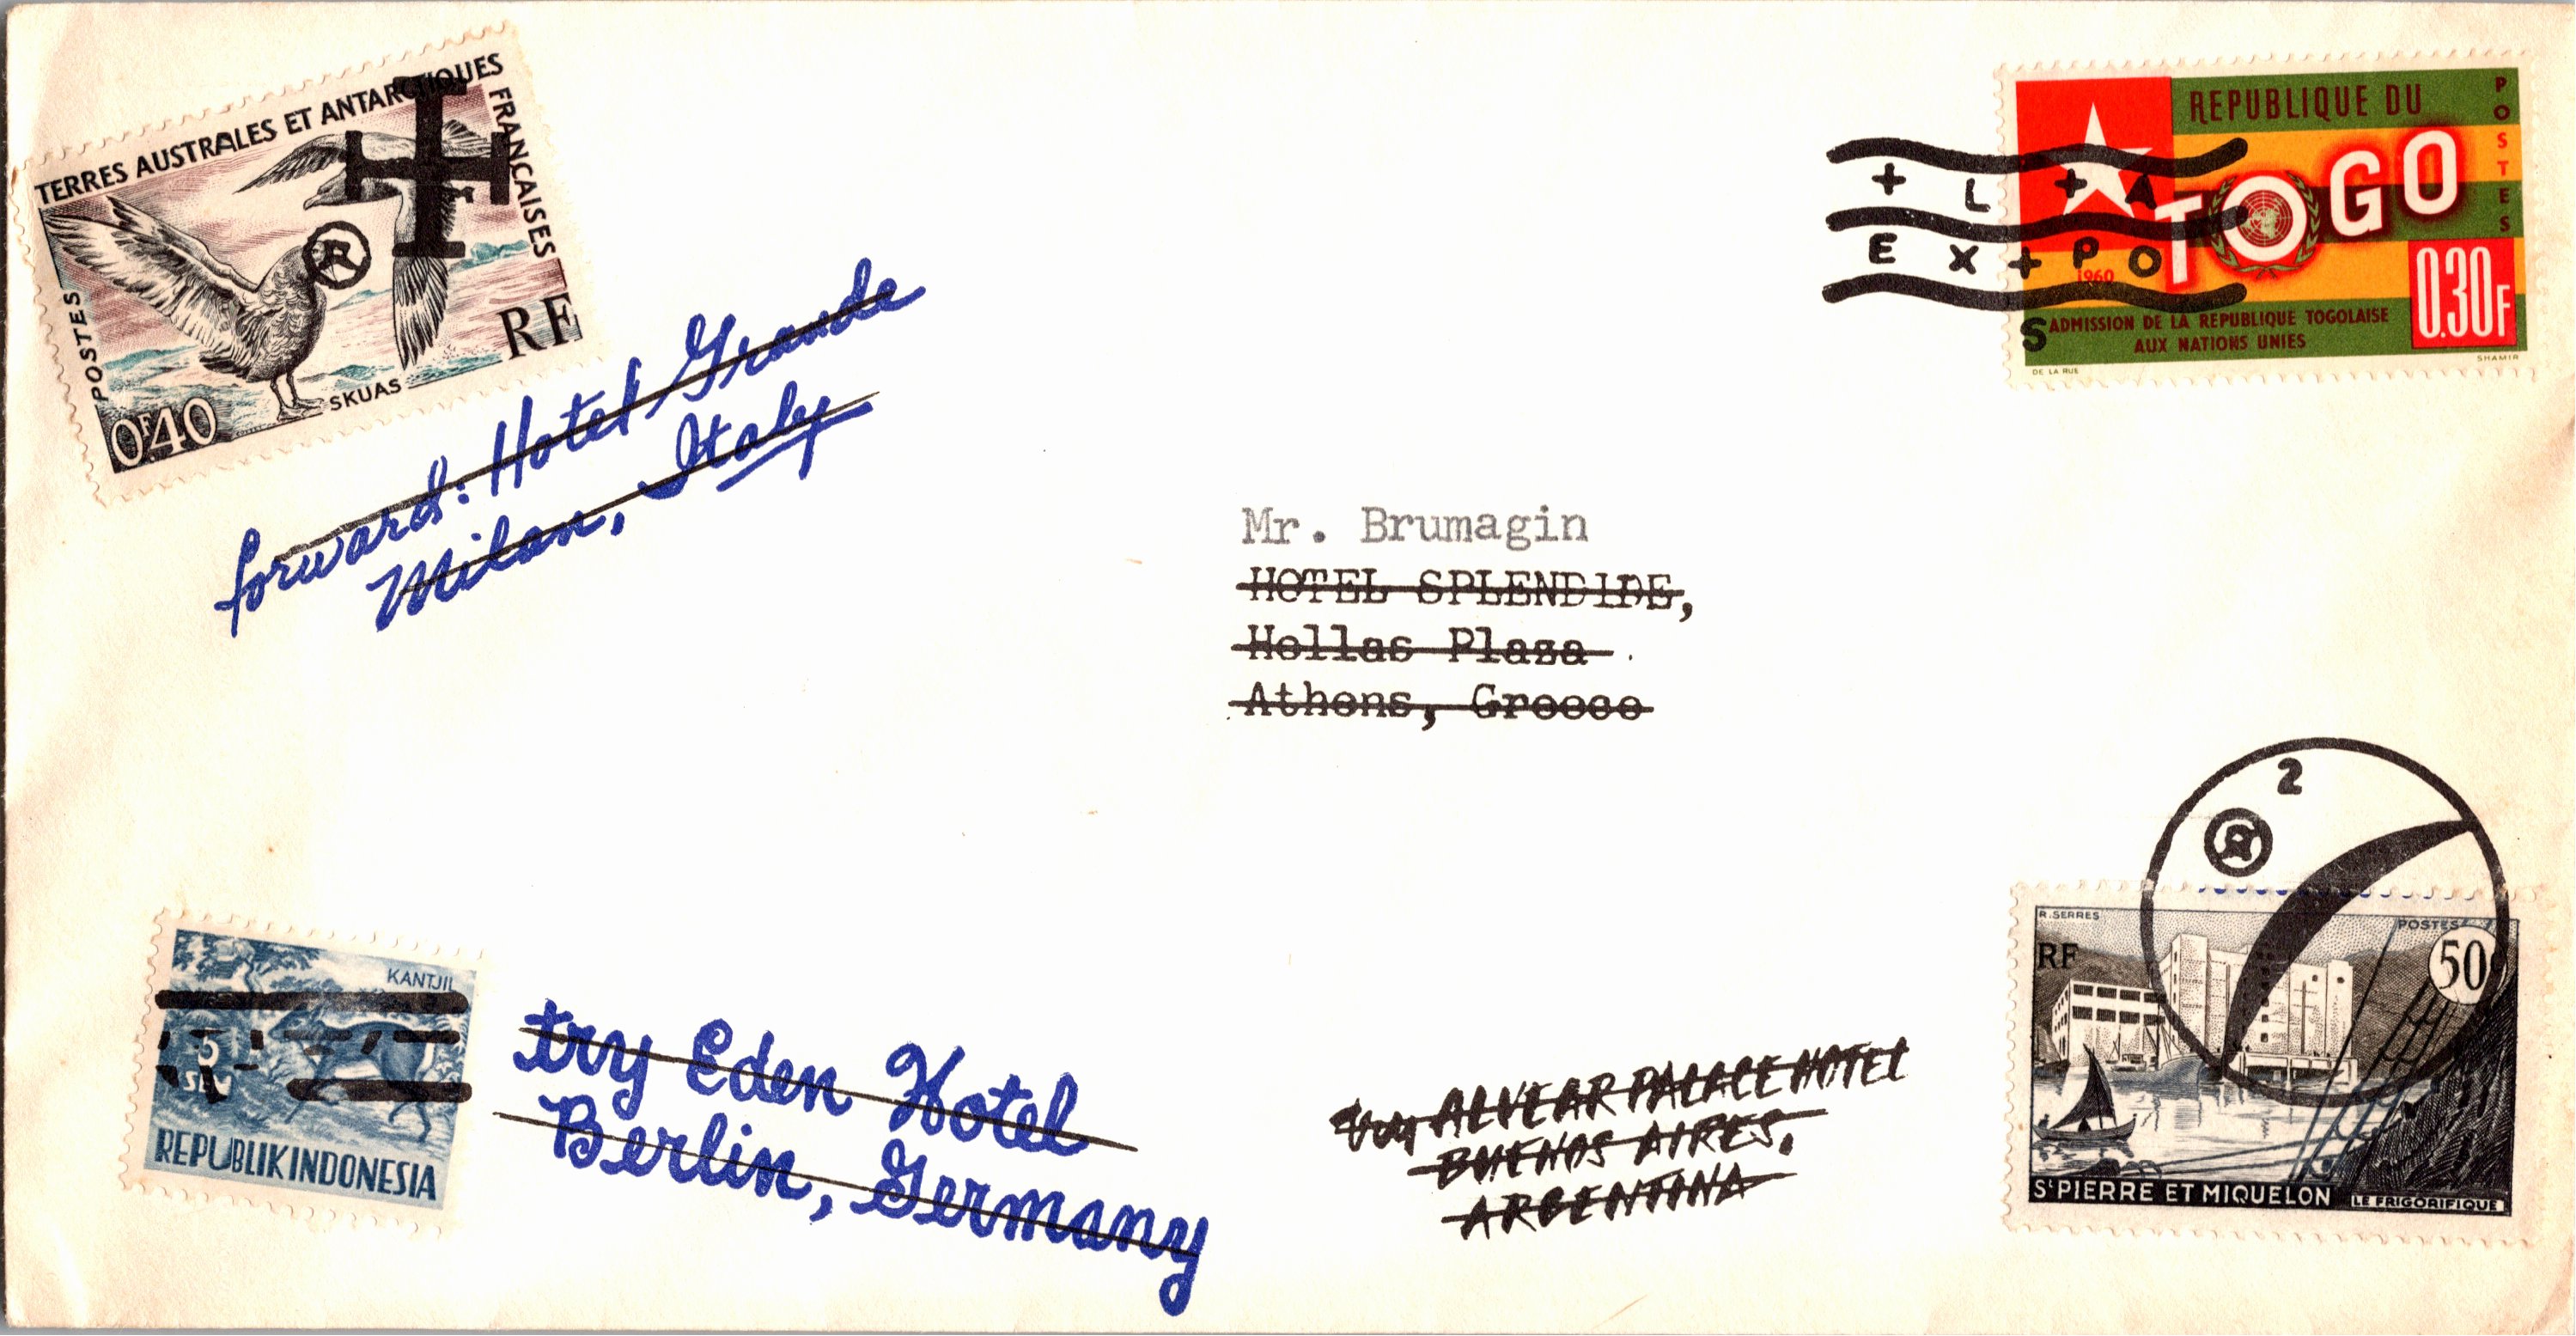 TERRES AUSTRALES ET ANTARCTIQUES
FRANÇAISES
POSTES
RF
SKUAS
0F40
forward: Hotel Grande
Milan, Italy
REPUBLIQUE DU
POSTES
TOGO
1960
0.30F
ADMISSION DE LA REPUBLIQUE TOGOLAISE
AUX NATIONS UNIES
DE LA RUE
SHAMIR
+ L + A
E X + P O
S
Mr. Brumagin
HOTEL SPLENDIDE,
Hellas Plaza
Athens, Greece
KANTJIL
5
SEN
REPUBLIK INDONESIA
try Eden Hotel
Berlin, Germany
ALVEAR PALACE HOTEL
BUENOS AIRES,
ARGENTINA
2
R. SERRES
POSTES
RF
50
ST PIERRE ET MIQUELON
LE FRIGORIFIQUE